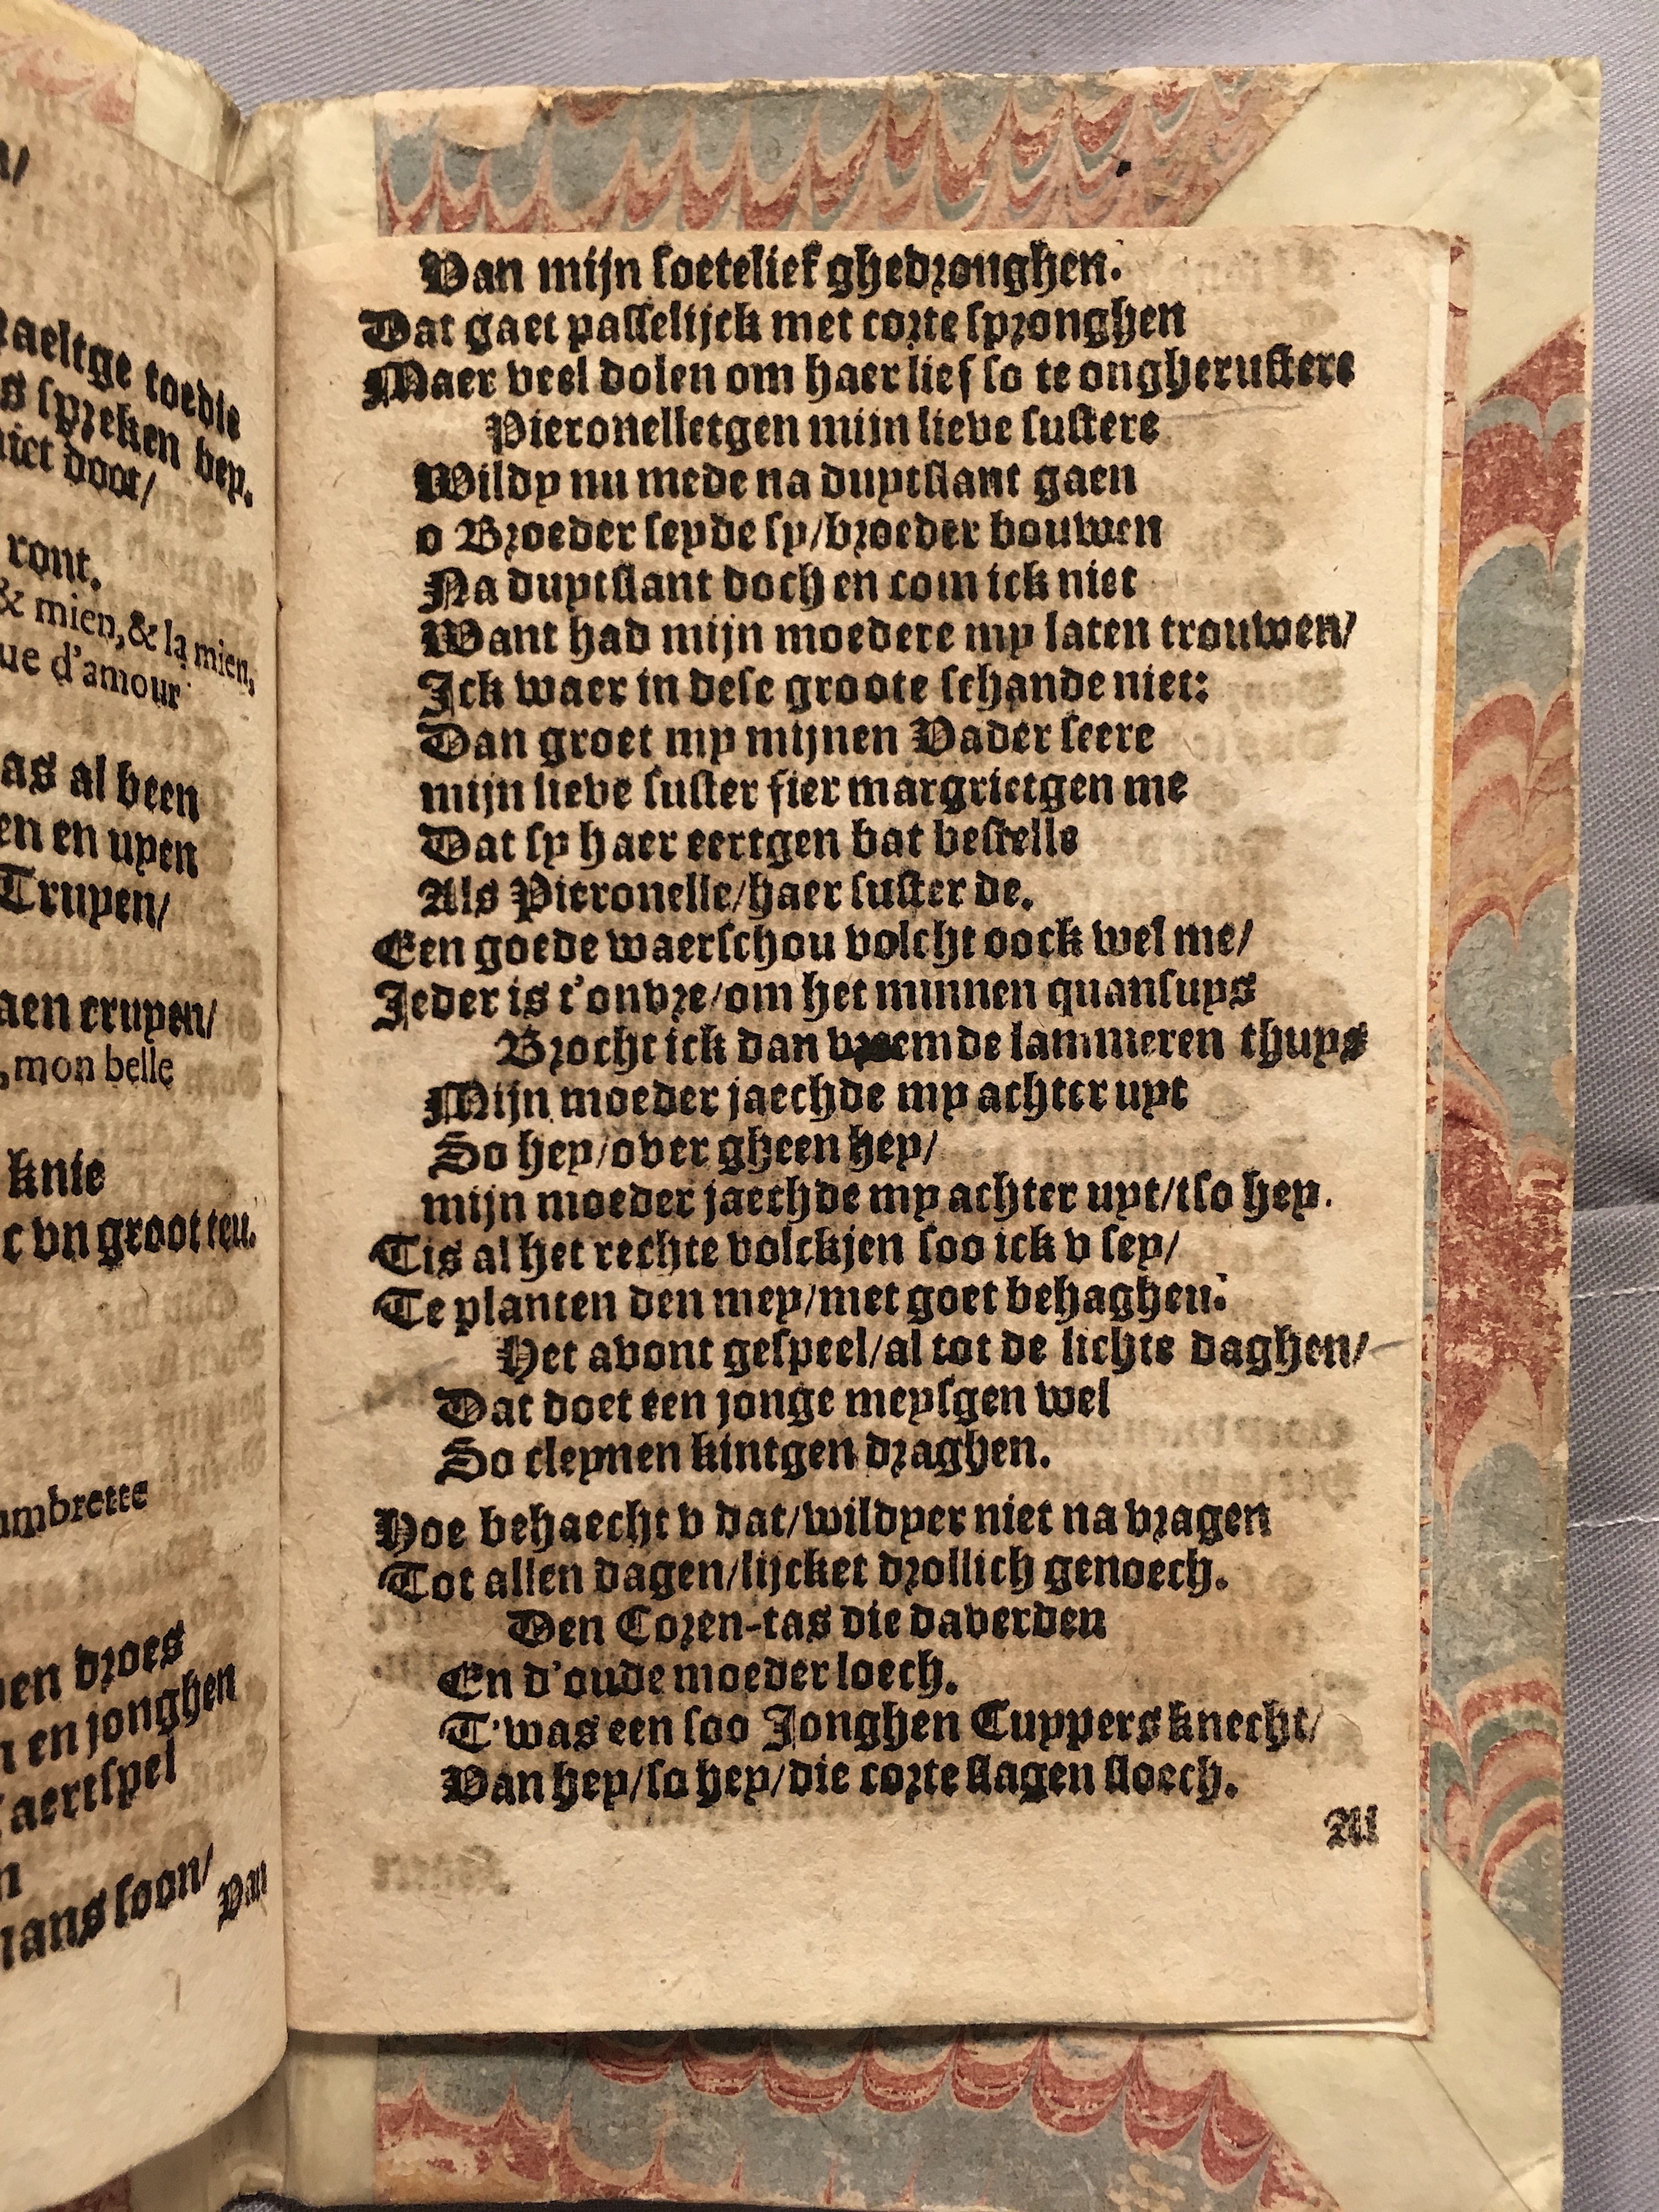 n/
raeltge toedie
s spreken bey.
niet doot/
ront.
& mien, & la mien,
ue d'amour
as al been
en en uyen
Truyen/
aen cruyen/
, mon belle
knie
c vn groot teu.
ambrette
en droes
n en jonghen
aertspel
n
mans soon/
Van
Van mijn soetelief ghedronghen.
Dat gaet passelijck met corte spronghen
Maer veel dolen om haer lief so te ongherustere
Pieronelletgen mijn lieve sustere
Wildy nu mede na duytslant gaen
o Broeder seyde sy/broeder bouwen
Na duytslant doch en com ick niet
Want had mijn moedere my laten trouwen/
Ick waer in dese groote schande niet:
Dan groet my mijnen Vader seere
mijn lieve suster fier margrietgen me
Dat sy haer eertgen bat bestelle
Als Pieronelle/haer suster de.
Een goede waerschou volcht oock wel me/
Ieder is t'onvre/om het minnen quansuys
Brocht ick dan vreemde lammeren thuys
Mijn moeder jaechde my achter uyt
So hey/over gheen hey/
mijn moeder jaechde my achter uyt/tso hey.
Tis al het rechte volckjen soo ick v sey/
Te planten den mey/met goet behaghen:
Het avont gespeel/al tot de lichte daghen/
Dat doet een jonge meysgen wel
So cleynen kintgen draghen.
Hoe behaecht v dat/wildyer niet na vragen
Tot allen dagen/lijcket drollich genoech.
Den Coren-tas die daverden
En d'oude moeder loech.
T'was een soo Jonghen Cuypers knecht/
Van hey/so hey/die corte slagen sloech.
Al